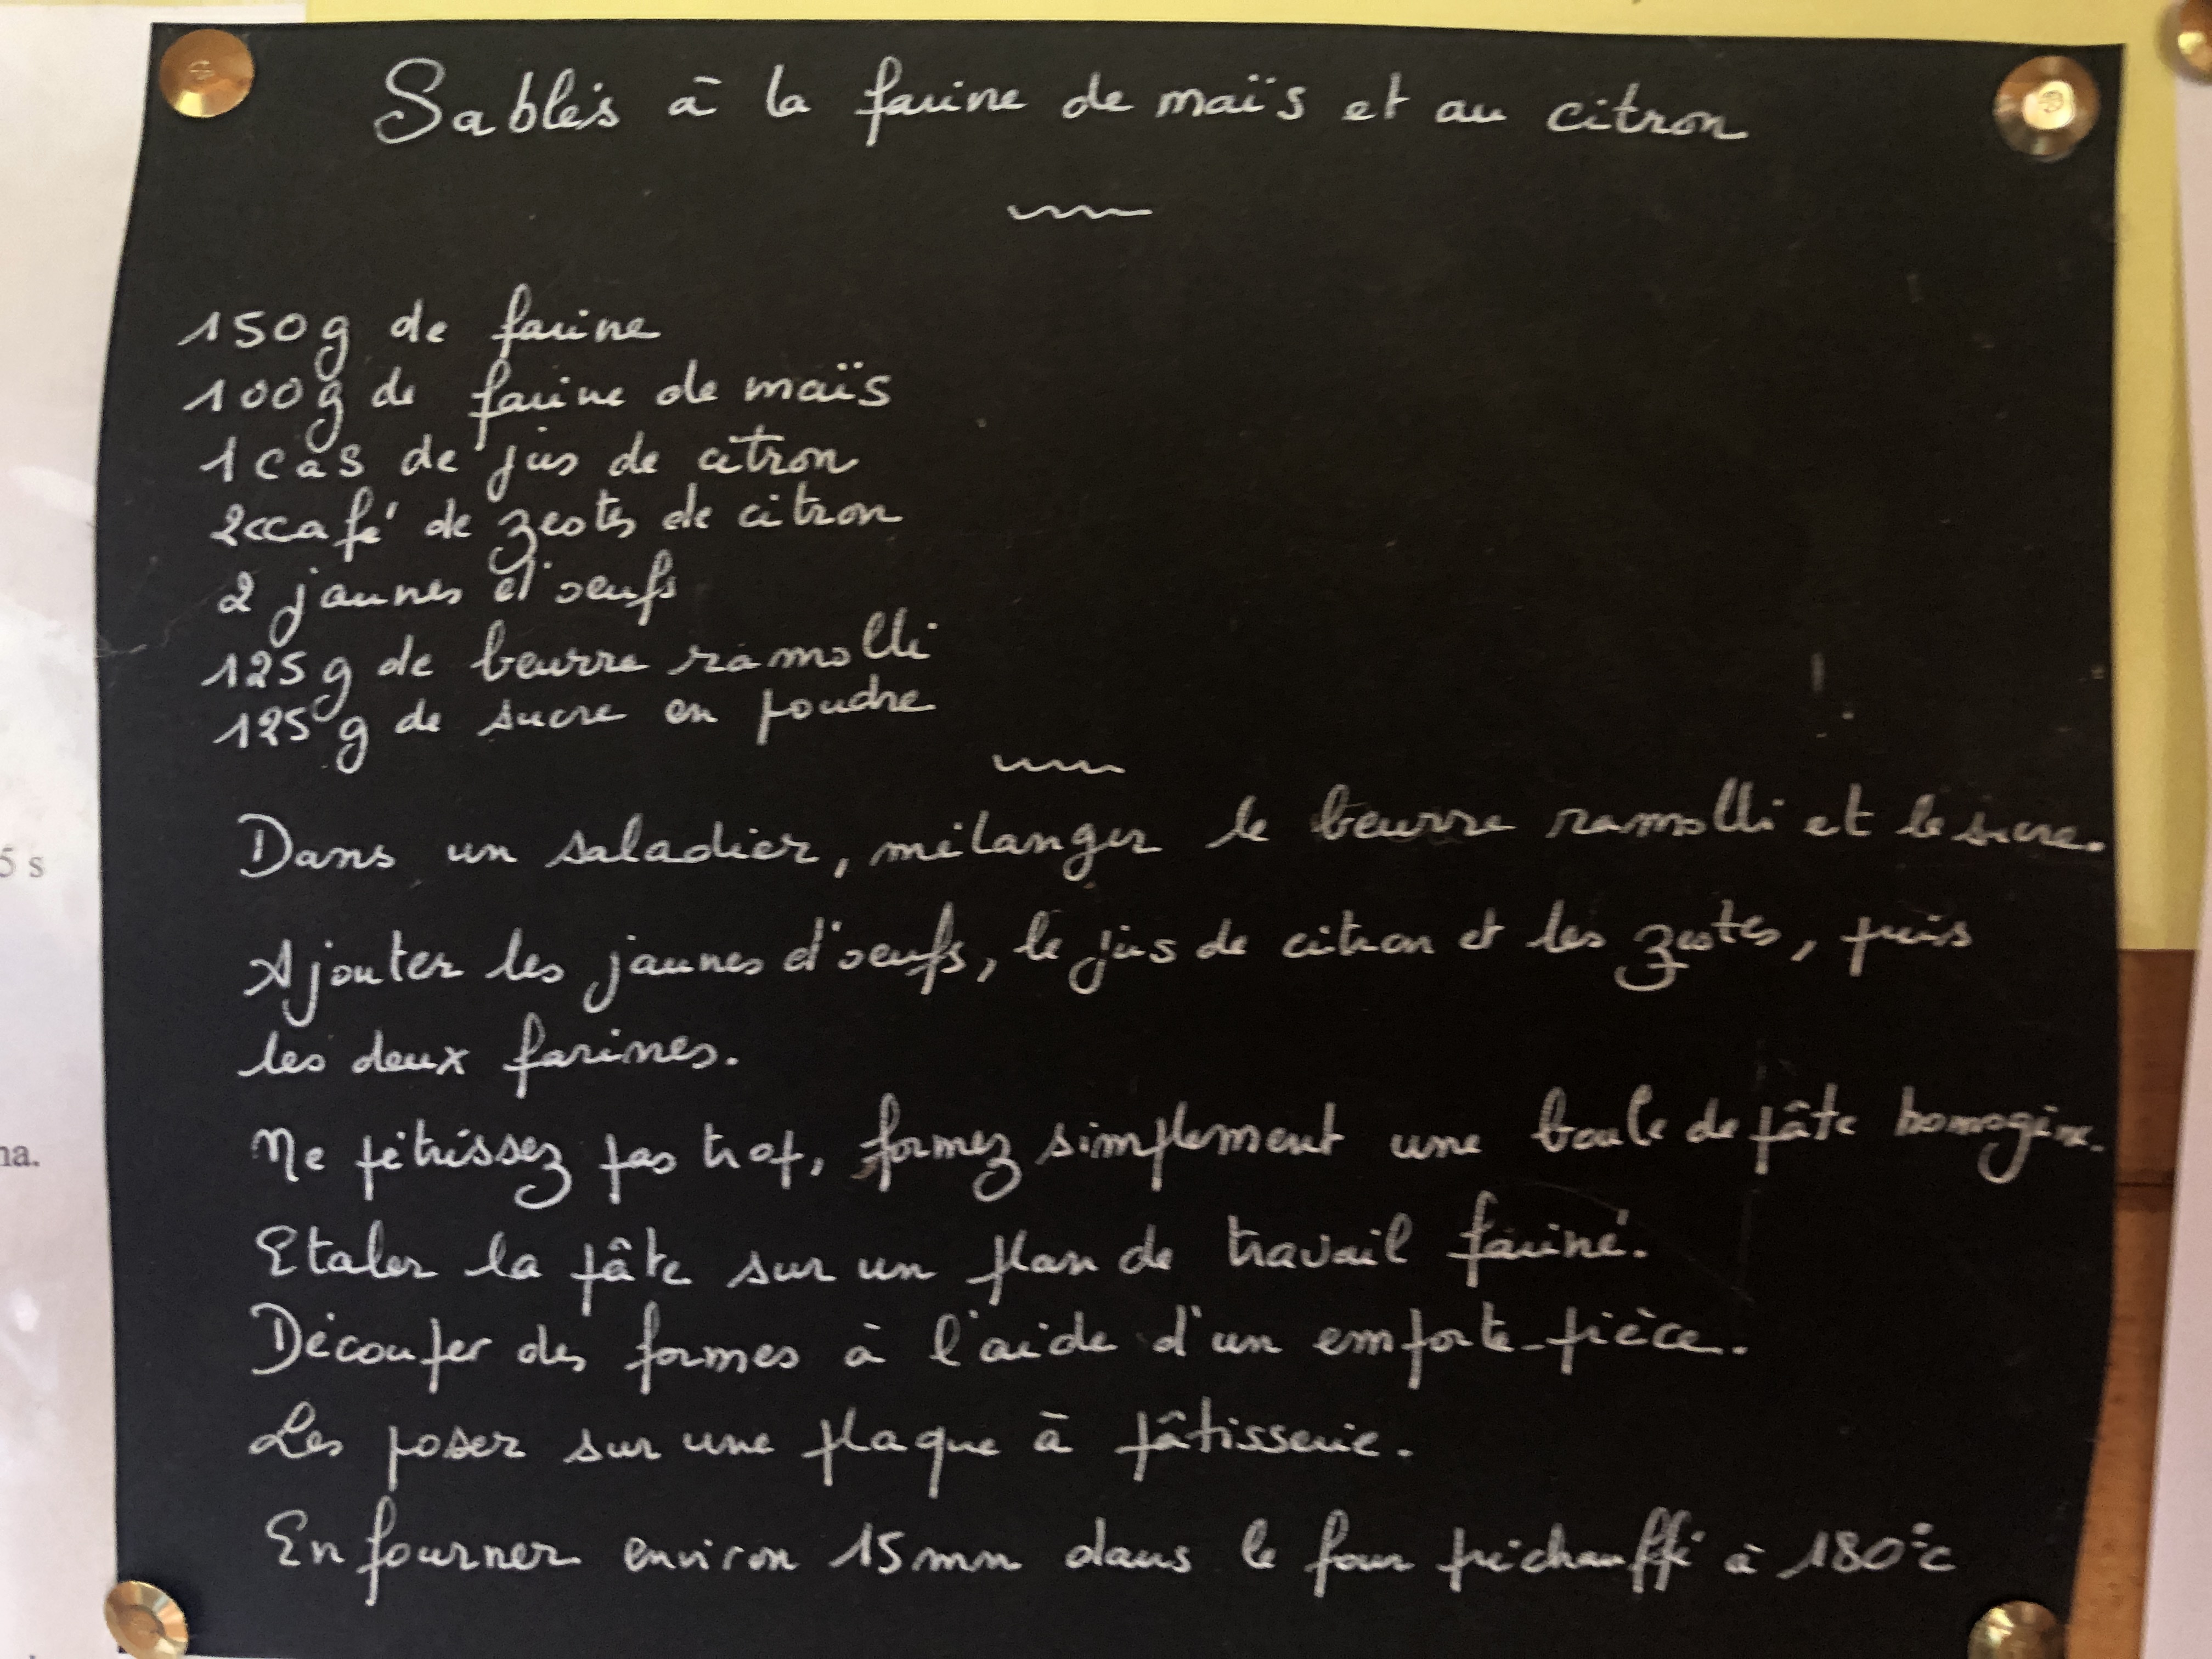 Sablés à la farine de maïs et au citron
150g de farine
100g de farine de maïs
1 càs de jus de citron
2 ccafé de zestes de citron
2 jaunes d'oeufs
125g de beurre ramolli
125g de sucre en poudre
Dans un saladier, mélanger le beurre ramolli et le sucre.
Ajouter les jaunes d'oeufs, le jus de citron et les zestes, puis
les deux farines.
Ne pétrissez pas trop, formez simplement une boule de pâte homogène.
Etaler la pâte sur un plan de travail fariné.
Découper des formes à l'aide d'un emporte-pièce.
Les poser sur une plaque à pâtisserie.
Enfourner environ 15mn dans le four préchauffé à 180°c
5 s
na.